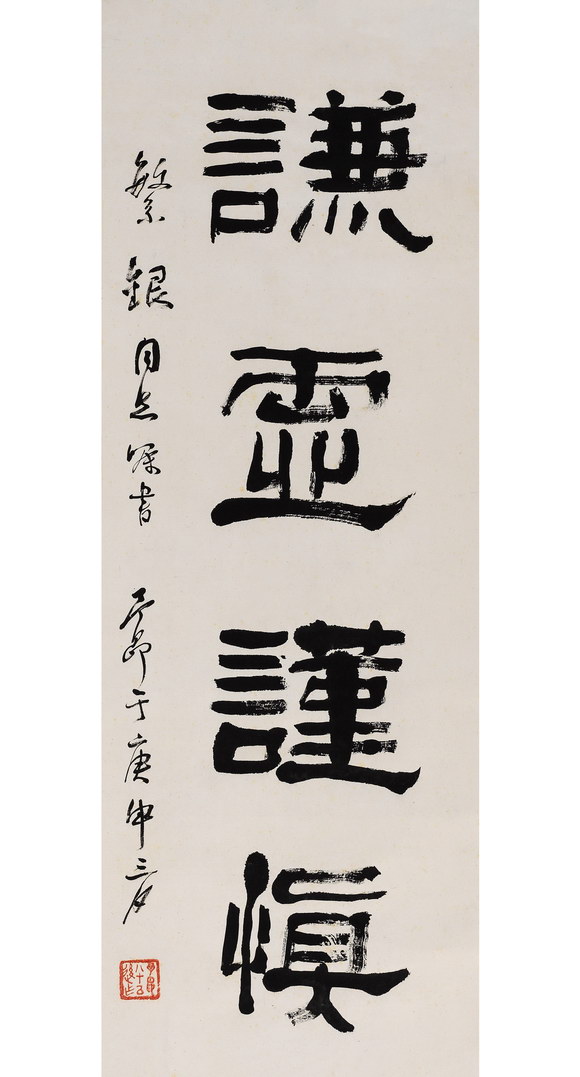 謙虛謹慎
繁銀同志嘱書
于庚申三月